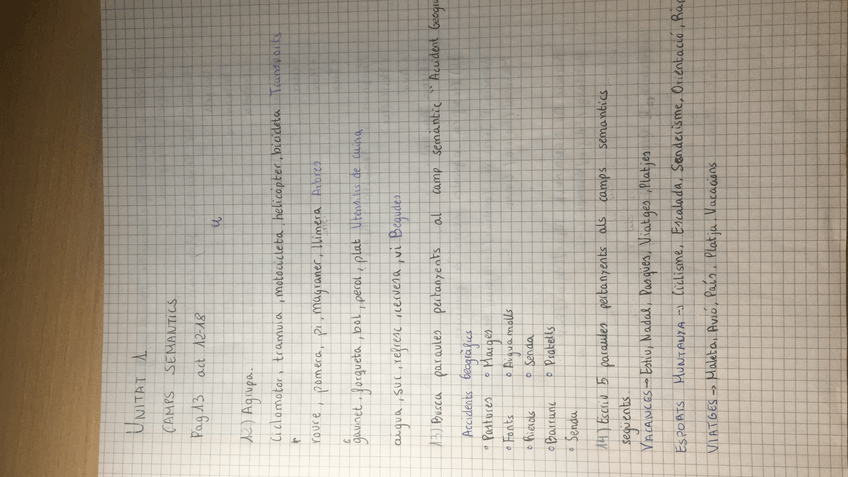 UNITAT 1
CAMPS SEMANTICS
Pag 13 act 12-18
12) Agrupa.
Ciclomotor, tramvia, motocicleta, helicòpter, bicicleta Transports
roure, pomera, pi, magraner, llimera Arbres
gavinet, forqueta, bol, perol, plat Utensilis de cuina
aigua, suc, refresc, cervera, vi Begudes
13) Busca paraules pertanyents al camp semàntic "Accident Geogra
Accidents Geogràfics
Pastures Marges
Fonts Aiguamolls
Rieras Senda
Barranc Pratells
Senda
14) Escriu 5 paraules pertanyents als camps semantics
següents
VACANCES → Estiu, Nadal, Pasqües, Viatges, Platjes
ESPORTS MUNTANYA → Ciclisme, Escalada, Senderisme, Orientació, Ràp
VIATGES → Maleta, Avió, País, Platja, Vacacions